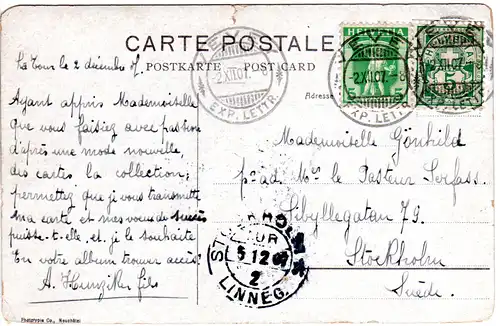 CARTE POSTALE.
POSTKARTE POST CARD
Adresse
HELVETIA
5
VEVEY
-2.XII.07.-8
EXP. LETTR.
VEVEY
-2.XII.07.-8
EXP. LETTR.
La Tour le 2 décembre 07.
Ayant appris Mademoiselle
que vous faisiez avec passion
d'après une mode nouvelle
des cartes la collection;
permettez que je vous transmette
ma carte et mes voeux de succès
puisse-t-elle, et je le souhaite
En votre album trouver accès
A. Hunziker fils
Mademoiselle Gönhild
p. ad. Mr le Pasteur Serfass.
Sibyllegatan 79.
Stockholm
Suède.
STOCKHOLM
5 12 07
2
LINNEG.
Phototypie Co., Neuchâtel